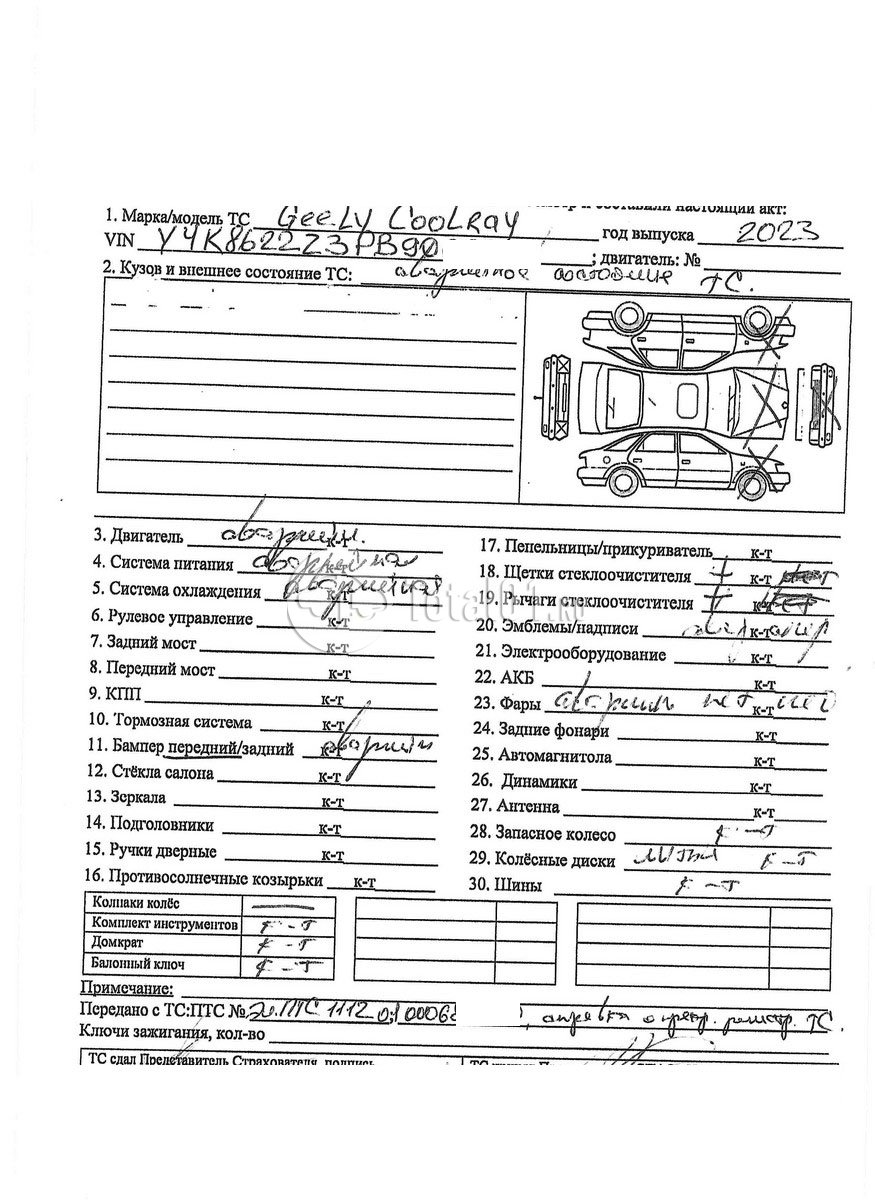 настоящий акт:
1. Марка/модель ТС Geely Coolray
год выпуска 2023
VIN Y4K8622Z3PB90
; двигатель: №
2. Кузов и внешнее состояние ТС: аварийное состояние ТС.
3. Двигатель аварийн. к-т
4. Система питания аварийная к-т
5. Система охлаждения аварийная к-т
6. Рулевое управление к-т
7. Задний мост к-т
8. Передний мост к-т
9. КПП к-т
10. Тормозная система к-т
11. Бампер передний/задний к-т аварийн
12. Стёкла салона к-т
13. Зеркала к-т
14. Подголовники к-т
15. Ручки дверные к-т
16. Противосолнечные козырьки к-т
17. Пепельницы/прикуриватель к-т
18. Щетки стеклоочистителя к-т
19. Рычаги стеклоочистителя к-т
20. Эмблемы/надписи к-т
21. Электрооборудование к-т
22. АКБ к-т
23. Фары к-т
24. Задние фонари к-т
25. Автомагнитола к-т
26. Динамики к-т
27. Антенна к-т
28. Запасное колесо к-т
29. Колёсные диски литые к-т
30. Шины к-т
Total01.ru
Колпаки колёс —
Комплект инструментов к-т
Домкрат к-т
Балонный ключ к-т
Примечание:
Передано с ТС:ПТС № Эл.ПТС 1112 01 0006
ТС.
Ключи зажигания, кол-во
ТС сдал Представитель Страхователя, подпись